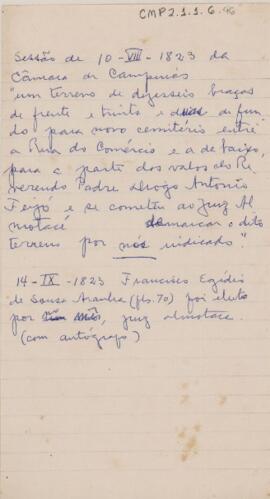 CMP2.1.1.6.96
Sessão de 10-VIII-1823 da
Câmara de Campinas
"um terreno de dezesseis braças
de frente e trinta e duas de fun
do para novo cemitério entre
a Rua do Comércio e a de baixo,
para a parte dos valos do Re
verendo Padre Diogo Antonio
Feijó e se cometeu ao Juiz Al
motacé demarcar o dito
terreno por nós indicado".
14-IX-1823 Francisco Egídio
de Sousa Aranha (fls. 70) foi eleito
por juiz almotacé.
(com autógrafo)